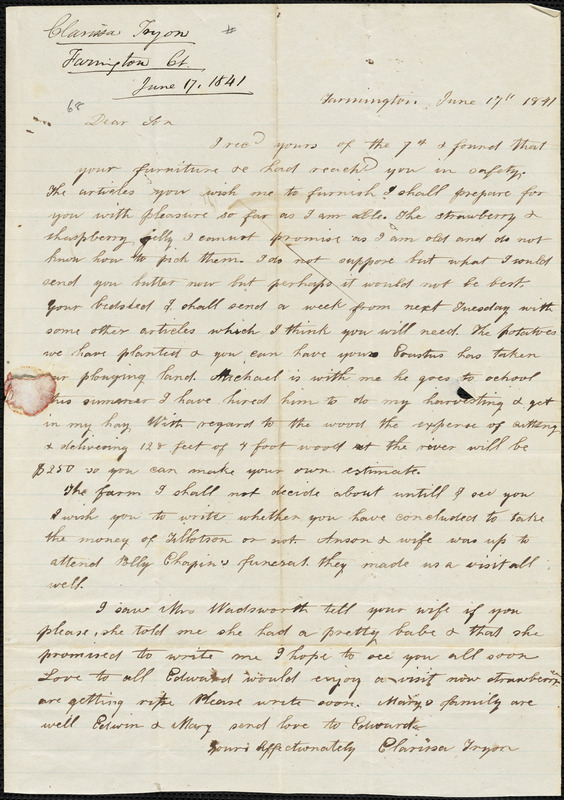 Clarissa Tryon #
Farmington Ct.
June 17, 1841
68
Farmington. June 17th 1841
Dear Son
I recd yours of the 7th & found that
your furniture &c had reachd you in safety.
The articles you wish me to furnish I shall prepare for
you with pleasure so far as I am able. The strawberry &
rhaspberry jelly I cannot promise as I am old and do not
know how to pick them. I do not suppose but what I could
send you butter now but perhaps it would not be best.
Your bedsted I shall send a week from next Tuesday with
some other articles which I think you will need. The potatoes
we have planted & you can have yours has taken
our plouging land. Michael is with me he goes to school
this summer I have hired him to do my harvesting & get
in my hay. With regard to the wood the expense of cutting
& delivering 128 feet of 4 foot wood at the river will be
$250 so you can make your own estimate.
The farm I shall not decide about untill I see you
I wish you to write whether you have concluded to take
the money of Tillotson or not. Anson & wife was up to
attend Polly Chapin's funeral. they made us a visit all
well.
I saw Mrs Wadsworth tell your wife if you
please, she told me she had a pretty babe & that she
promised to write me I hope to see you all soon
Love to all Edward would enjoy a visit now strawberrys
are getting ripe Please write soon. Marys family are
well Edwin & Mary send love to Edward
Yours Affectionately Clarissa Tryon